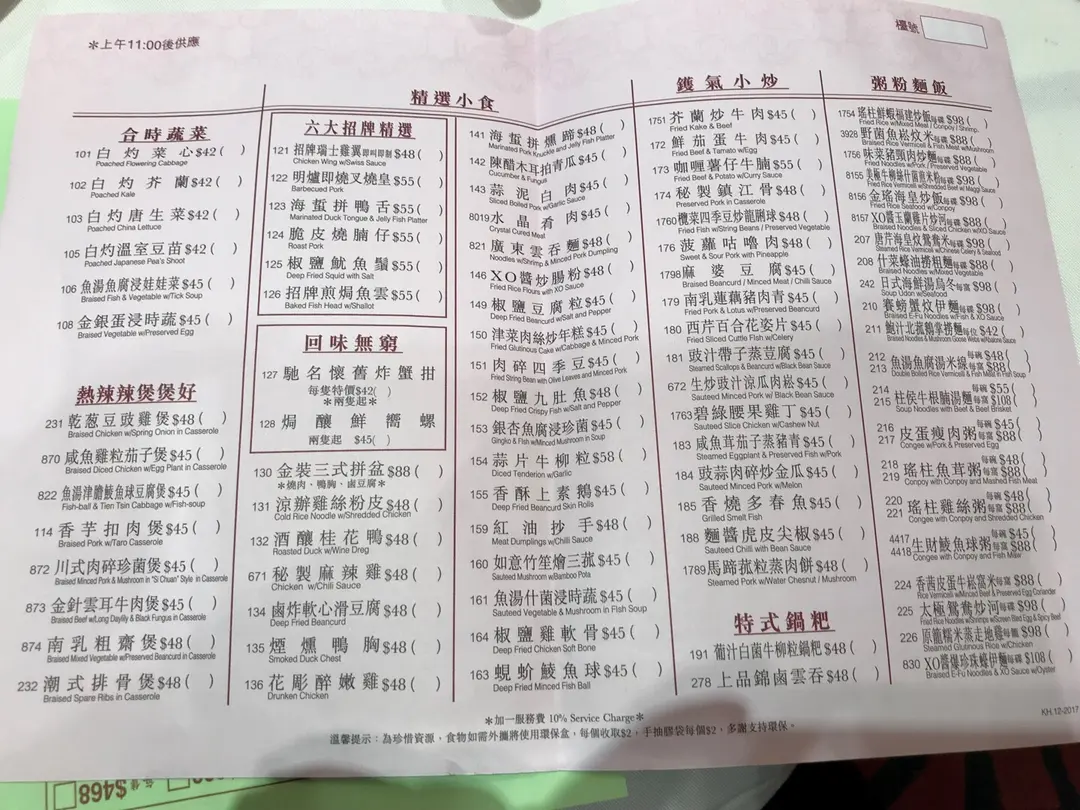 ＊上午11:00後供應
檯號
合時蔬菜
101 白灼菜心 $42 ( )
Poached Flowering Cabbage
102 白灼芥蘭 $42 ( )
Poached Kale
103 白灼唐生菜 $42 ( )
Poached China Lettuce
105 白灼溫室豆苗 $42 ( )
Poached Japanese Pea's Shoot
106 魚湯魚腐浸娃娃菜 $45 ( )
Braised Fish & Vegetable w/Tick Soup
108 金銀蛋浸時蔬 $45 ( )
Braised Vegetable w/Preserved Egg
熱辣辣煲煲好
231 乾葱豆豉雞煲 $48 ( )
Braised Chicken w/Spring Onion in Casserole
870 咸魚雞粒茄子煲 $45 ( )
Braised Diced Chicken w/Egg Plant in Casserole
822 魚湯津膽鯪魚球豆腐煲 $45 ( )
Fish-ball & Tien Tsin Cabbage w/Fish-soup
114 香芋扣肉煲 $45 ( )
Braised Pork w/Taro Casserole
872 川式肉碎珍菌煲 $45 ( )
Braised Minced Pork & Mushroom in "Si Chuan" Style in Casserole
873 金針雲耳牛肉煲 $45 ( )
Braised Beef w/Long Dayilily & Black Fungus in Casserole
874 南乳粗齋煲 $48 ( )
Braised Mixed Vegetable w/Preserved Beancurd in Casserole
232 潮式排骨煲 $48 ( )
Braised Spare Ribs in Casserole
精選小食
六大招牌精選
121 招牌瑞士雞翼即叫即制 $48 ( )
Chicken Wing w/Swiss Sauce
122 明爐即燒叉燒皇 $55 ( )
Barbecued Pork
123 海蜇拼鴨舌 $55 ( )
Marinated Duck Tongue & Jelly Fish Platter
124 脆皮燒腩仔 $55 ( )
Roast Pork
125 椒鹽魷魚鬚 $55 ( )
Deep Fried Squid with Salt
126 招牌煎焗魚雲 $55 ( )
Baked Fish Head w/Shallot
回味無窮
127 馳名懷舊炸蟹拑
每隻特價$42( )
＊兩隻起＊
128 焗釀鮮嚮螺
兩隻起 $45( )
130 金裝三式拼盆 $88 ( )
＊燒肉、鴨胸、鹵豆腐＊
131 涼辦雞絲粉皮 $48 ( )
Cold Rice Noodle w/Shredded Chicken
132 酒釀桂花鴨 $48 ( )
Roasted Duck w/Wine Dreg
671 秘製麻辣雞 $48 ( )
Chicken w/Chili Sauce
134 鹵炸軟心滑豆腐 $48 ( )
Deep Fried Beancurd
135 煙燻鴨胸 $48 ( )
Smoked Duck Chest
136 花彫醉嫩雞 $48 ( )
Drunken Chicken
141 海蜇拼燻蹄 $48 ( )
Marinated Pork Knuckle and Jelly Fish Platter
142 陳醋木耳拍青瓜 $45 ( )
Cucumber & Fungus
143 蒜泥白肉 $45 ( )
Sliced Boiled Pork w/Garlic Sauce
8019 水晶肴肉 $45 ( )
Crystal Cured Meat
821 廣東雲吞麵 $48 ( )
Noodles w/Shrimp & Minced Pork Dumpling
146 XO醬炒腸粉 $48 ( )
Fried Rice Flours with XO Sauce
149 椒鹽豆腐粒 $45 ( )
Deep Fried Beancurd w/Salt and Pepper
150 津菜肉絲炒年糕 $45 ( )
Fried Glutinous Cake w/Cabbage & Minced Pork
151 肉碎四季豆 $45 ( )
Fried String Bean with Olive Leaves and Minced Pork
152 椒鹽九肚魚 $48 ( )
Deep Fried Crispy Fish w/Salt and Pepper
153 銀杏魚腐浸珍菌 $45 ( )
Gingko & Fish w/Minced Mushroom in Soup
154 蒜片牛柳粒 $58 ( )
Diced Tenderloin w/Garlic
155 香酥上素鵝 $45 ( )
Deep Fried Beancurd Skin Rolls
159 紅油抄手 $48 ( )
Meat Dumplings w/Chilli Sauce
160 如意竹笙燴三菰 $45 ( )
Sauteed Mushroom w/Bamboo Pota
161 魚湯什菌浸時蔬 $45 ( )
Sauteed Vegetable & Mushroom in Fish Soup
164 椒鹽雞軟骨 $45 ( )
Deep Fried Chicken Soft Bone
163 蜆蚧鯪魚球 $45 ( )
Deep Fried Minced Fish Ball
鑊氣小炒
1751 芥蘭炒牛肉 $45 ( )
Fried Kake & Beef
172 鮮茄蛋牛肉 $45 ( )
Fried Beef & Tomato w/Egg
173 咖喱薯仔牛腩 $55 ( )
Fried Beef & Potato w/Curry Sauce
174 秘製鎮江骨 $48 ( )
Fried Pork
1760 欖菜四季豆炒龍脷球 $48 ( )
Fried Fish w/String Beans / Preserved Vegetable
176 菠蘿咕嚕肉 $48 ( )
Sweet & Sour Pork with Pineapple
1798 麻婆豆腐 $45 ( )
Braised Beancurd / Minced Meat / Chilli Sauce
179 南乳蓮藕豬肉青 $45 ( )
Fried Pork & Lotus w/Preserved Beancurd
180 西芹百合花姿片 $45 ( )
Fried Sliced Cuttle Fish w/Celery
181 豉汁帶子蒸荳腐 $45 ( )
Steamed Scallops & Beancurd w/Black Bean Sauce
672 生炒豉汁涼瓜肉崧 $45 ( )
Sauteed Minced Pork w/ Black Bean Sauce
1763 碧綠腰果雞丁 $45 ( )
Sauteed Slice Chicken w/Cashew Nut
183 咸魚茸茄子蒸豬青 $45 ( )
Steamed Eggplant & Preserved Fish w/Pork
184 豉蒜肉碎炒金瓜 $45 ( )
Sauteed Minced Pork w/Melon
185 香燒多春魚 $45 ( )
Grilled Smelt Fish
188 麵醬虎皮尖椒 $45 ( )
Sauteed Chilli with Bean Sauce
1789 馬蹄菰粒蒸肉餅 $48 ( )
Steamed Pork w/Water Chesnut / Mushroom
特式鍋粑
191 葡汁白菌牛柳粒鍋粑 $48 ( )
278 上品錦鹵雲吞 $48 ( )
粥粉麵飯
1754 瑤柱鮮蝦福建炒飯每碟 $98 ( )
Fried Rice w/Mixed Meat / Conpoy / Shrimp
3928 野菌魚崧炆米每碟 $88 ( )
Braised Rice Vermicelli & Fish Meat w/Mushroom
1756 味菜豬頸肉炒麵每碟 $88 ( )
Fried Noodles w/Pork / Preserved Vegetable
8155 美極牛柳絲什菌煎米粉每碟 $88 ( )
Fried Rice Vermicelli w/Shredded Beef w/ Maggi Sauce
8156 金瑤海皇炒飯每碟 $98 ( )
Fried Rice Seafood w/Conpoy
8157 XO醬玉蘭雞片炒河每碟 $88 ( )
Braised Noodles & Sliced Chicken w/XO Sauce
207 唐芹海皇炆鴛鴦米每碟 $98 ( )
Steamed Rice Vermicelli w/Chinese Celery & Seafood
208 什菜蠔油撈粗麵每碟 $88 ( )
Braised Noodles w/Mixed Vegetable
242 日式海鮮湯烏冬每窩 $98 ( )
Soup Udon w/Seafood
210 賽螃蟹炆伊麵每碟 $98 ( )
Braised E-Fu Noodles w/Fish & XO Sauce
211 鮑汁北菰鵝掌撈麵每位 $42 ( )
Braised Noodles & Mushroom Goose Webs w/Abalone Sauce
212 魚湯魚腐湯米線 每碗 $48 ( )
213 每窩 $88 ( )
Double Boiled Rice Vermicelli & Fish Meat in Fish Soup
214 柱侯牛根腩湯麵 每碗 $55 ( )
215 每窩 $108 ( )
Soup Noodles with Beef & Beef Brisket
216 皮蛋瘦肉粥 每碗 $45 ( )
217 每窩 $88 ( )
Congee w/Pork & Preserved Egg
218 瑤柱魚茸粥 每碗 $48 ( )
219 每窩 $88 ( )
Congee with Conpoy and Mashed Fish Meat
220 瑤柱雞絲粥 每碗 $48 ( )
221 每窩 $88 ( )
Congee with Conpoy and Shredded Chicken
4417 生財鯪魚球粥 每碗 $45 ( )
4418 每窩 $88 ( )
Congee with Conpoy and Fish Meat
224 香茜皮蛋牛崧窩米每窩 $88 ( )
Rice Vermicelli w/Minced Beef & Preserved Egg Coriander
225 太極鴛鴦炒河每碟 $98 ( )
226 原籠糯米蒸走地雞每籠 $98 ( )
Steamed Glutinous Rice w/Chicken
830 XO醬爆珍珠蠔伊麵每碟 $108 ( )
Braised E-Fu Noodles & XO Sauce w/Oyster
KH.12-2017
＊加一服務費 10% Service Charge＊
溫馨提示：為珍惜資源，食物如需外攜將使用環保盒，每個收取$2，手抽膠袋每個$2，多謝支持環保。
$468